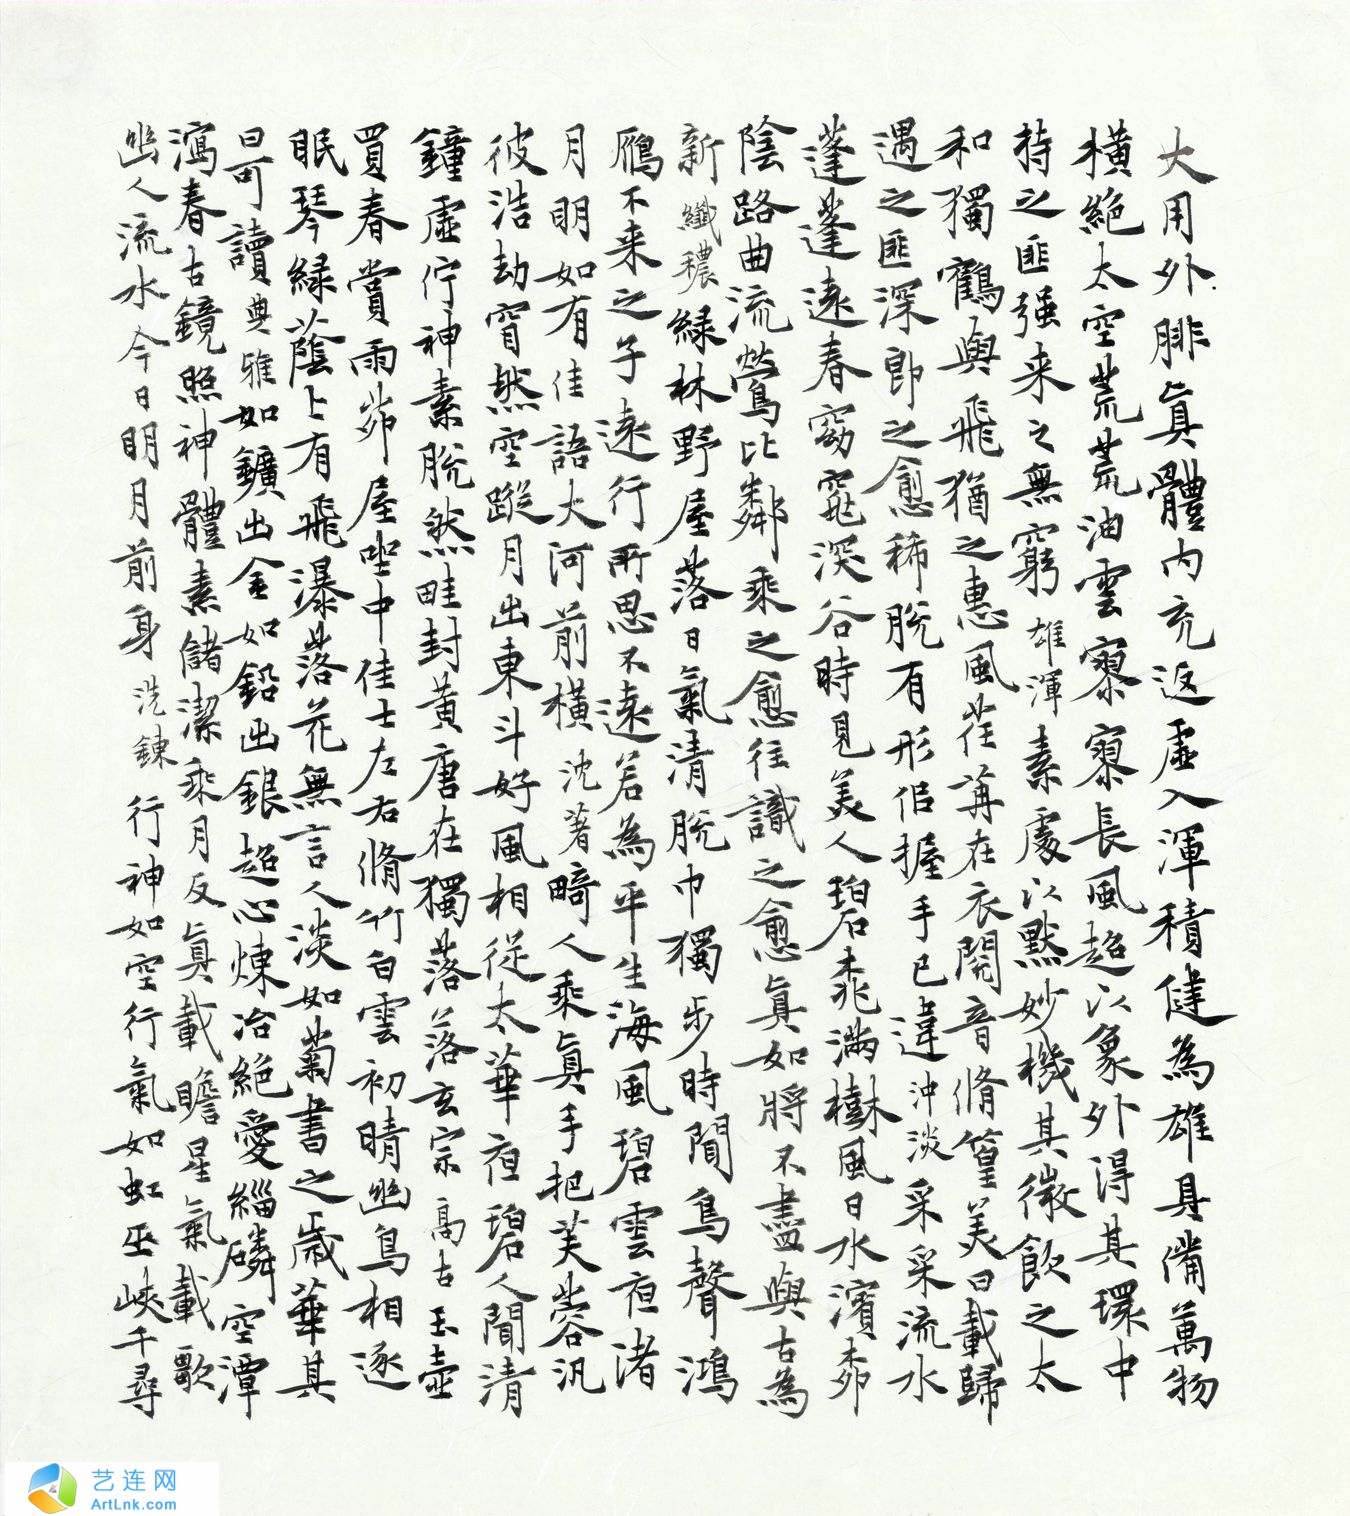 大用外腓真體內充返虛入渾積健為雄具備萬物
橫絕太空荒荒油雲寥寥長風超以象外得其環中
持之匪強来之無窮 雄渾 素處以默妙機其微飲之太
和獨鶴與飛猶之惠風荏苒在衣閱音脩篁美曰載歸
遇之匪深即之愈稀脫有形佀握手已違 沖淡 采采流水
蓬蓬遠春窈窕深谷時見美人碧桃滿樹風日水濱柳
陰路曲流鶯比鄰乘之愈往識之愈真如將不盡與古為
新 纖穠 綠林野屋落日氣清脫巾獨步時聞鳥聲鴻
鴈不来之子遠行所思不遠若為平生海風碧雲夜渚
月明如有佳語大河前橫 沈著 畸人乘真手把芙蓉汎
彼浩劫窅然空蹤月出東斗好風相從太華夜碧人聞清
鐘虛佇神素脫然畦封黃唐在獨落落玄宗 高古 玉壺
買春賞雨茆屋坐中佳士左右脩竹白雲初晴幽鳥相逐
眠琴綠蔭上有飛瀑落花無言人淡如菊書之歲華其
曰可讀 典雅 如鑛出金如鉛出銀超心煉冶絕愛緇磷空潭
瀉春古鏡照神體素儲潔乘月反真載瞻星氣載歌
幽人流水今日明月前身 洗鍊 行神如空行氣如虹巫峽千尋
艺连网
ArtLnk.com